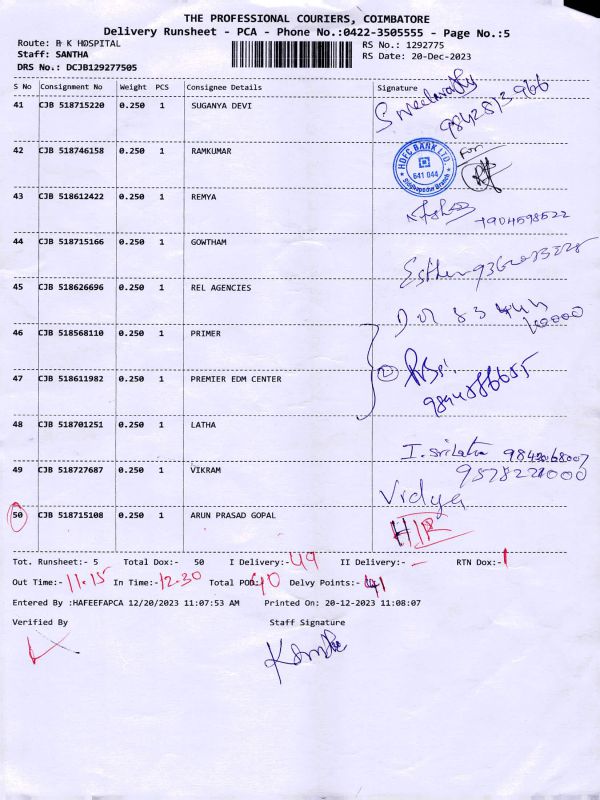 THE PROFESSIONAL COURIERS, COIMBATORE
Delivery Runsheet - PCA - Phone No.:0422-3505555 - Page No.:5
Route: R K HOSPITAL
Staff: SANTHA
DRS No.: DCJB129277505
RS No.: 1292775
RS Date: 20-Dec-2023
S No Consignment No Weight PCS Consignee Details Signature
41 CJB 518715220 0.250 1 SUGANYA DEVI
42 CJB 518746158 0.250 1 RAMKUMAR
HDFC BANK LTD.
641 044
For
43 CJB 518612422 0.250 1 REMYA
44 CJB 518715166 0.250 1 GOWTHAM
Esther
45 CJB 518626696 0.250 1 REL AGENCIES
46 CJB 518568110 0.250 1 PRIMER
47 CJB 518611982 0.250 1 PREMIER EDM CENTER
48 CJB 518701251 1 0.250 LATHA
I. Srilatha
49 CJB 518727687 0.250 1 VIKRAM
Vidya
50 CJB 518715108 0.250 1 ARUN PRASAD GOPAL
Tot. Runsheet:- 5 Total Dox:- 50 I Delivery:- 49 II Delivery:- - RTN Dox:- 1
Out Time:- 11.15 In Time:- 12.30 Total POD:- 40 Delvy Points:- 41
Entered By :HAFEEFAPCA 12/20/2023 11:07:53 AM Printed On: 20-12-2023 11:08:07
Verified By Staff Signature